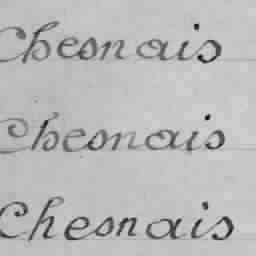 Chesnais
Chesnais
Chesnais